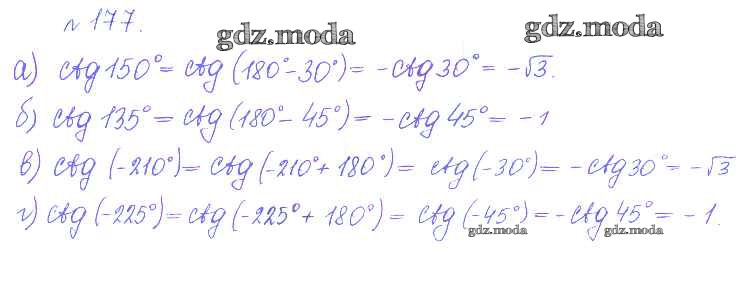 № 177.
gdz.moda gdz.moda
а) ctg 150° = ctg (180° - 30°) = -ctg 30° = -√3.
б) ctg 135° = ctg (180° - 45°) = -ctg 45° = -1
в) ctg (-210°) = ctg (-210° + 180°) = ctg (-30°) = -ctg 30° = -√3
г) ctg (-225°) = ctg (-225° + 180°) = ctg (-45°) = -ctg 45° = -1.
gdz.moda gdz.moda